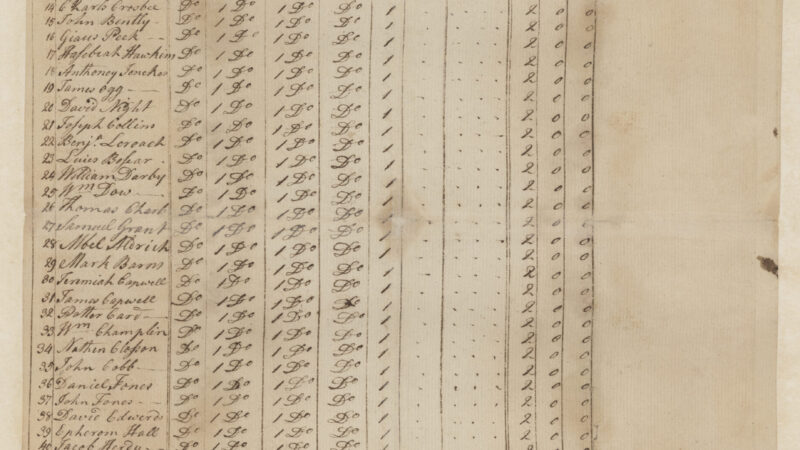 14 Charls Crosbee Do 1 Do 1 Do Do 1 2 0 0
15 John Bently Do 1 Do 1 Do Do 1 2 0 0
16 Giaus Peek Do 1 Do 1 Do Do 1 2 0 0
17 Hasebeah Hawkins Do 1 Do 1 Do Do 1 2 0 0
18 Anthoney Do 1 Do 1 Do Do 1 2 0 0
19 James Ogg Do 1 Do 1 Do Do 1 2 0 0
20 David Night Do 1 Do 1 Do Do 1 2 0 0
21 Joseph Collins Do 1 Do 1 Do Do 1 2 0 0
22 Benja. Leroach Do 1 Do 1 Do Do 1 2 0 0
23 Luies Bosar Do 1 Do 1 Do Do 1 2 0 0
24 William Darby Do 1 Do 1 Do Do 1 2 0 0
25 Wm Dow Do 1 Do 1 Do Do 1 2 0 0
26 Thomas Charls Do 1 Do 1 Do Do 1 2 0 0
27 Samuel Grant Do 1 Do 1 Do Do 1 2 0 0
28 Abel Aldrich Do 1 Do 1 Do Do 1 2 0 0
29 Mark Barns Do 1 Do 1 Do Do 1 2 0 0
30 Jeremiah Capwell Do 1 Do 1 Do Do 1 2 0 0
31 James Capwell Do 1 Do 1 Do Do 1 2 0 0
32 Potter Card Do 1 Do 1 Do Do 1 2 0 0
33 Wm Champlin Do 1 Do 1 Do Do 1 2 0 0
34 Nathen Closson Do 1 Do 1 Do Do 1 2 0 0
35 John Cobb Do 1 Do 1 Do Do 1 2 0 0
36 Daniel Fones Do 1 Do 1 Do Do 1 2 0 0
37 John Fones Do 1 Do 1 Do Do 1 2 0 0
38 David Edwerds Do 1 Do 1 Do Do 1 2 0 0
39 Epherom Hall Do 1 Do 1 Do Do 1 2 0 0
40 Jacob Do 1 Do 1 Do Do 1